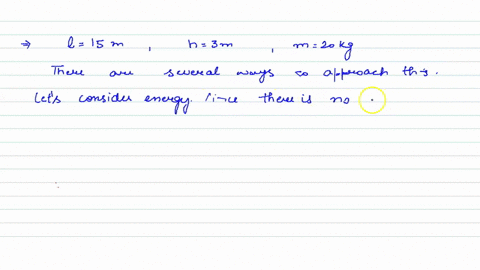 ⇒ l = 15 m , h = 3 m , m = 20 kg
There are several ways to approach this.
Let's consider energy. Since there is no